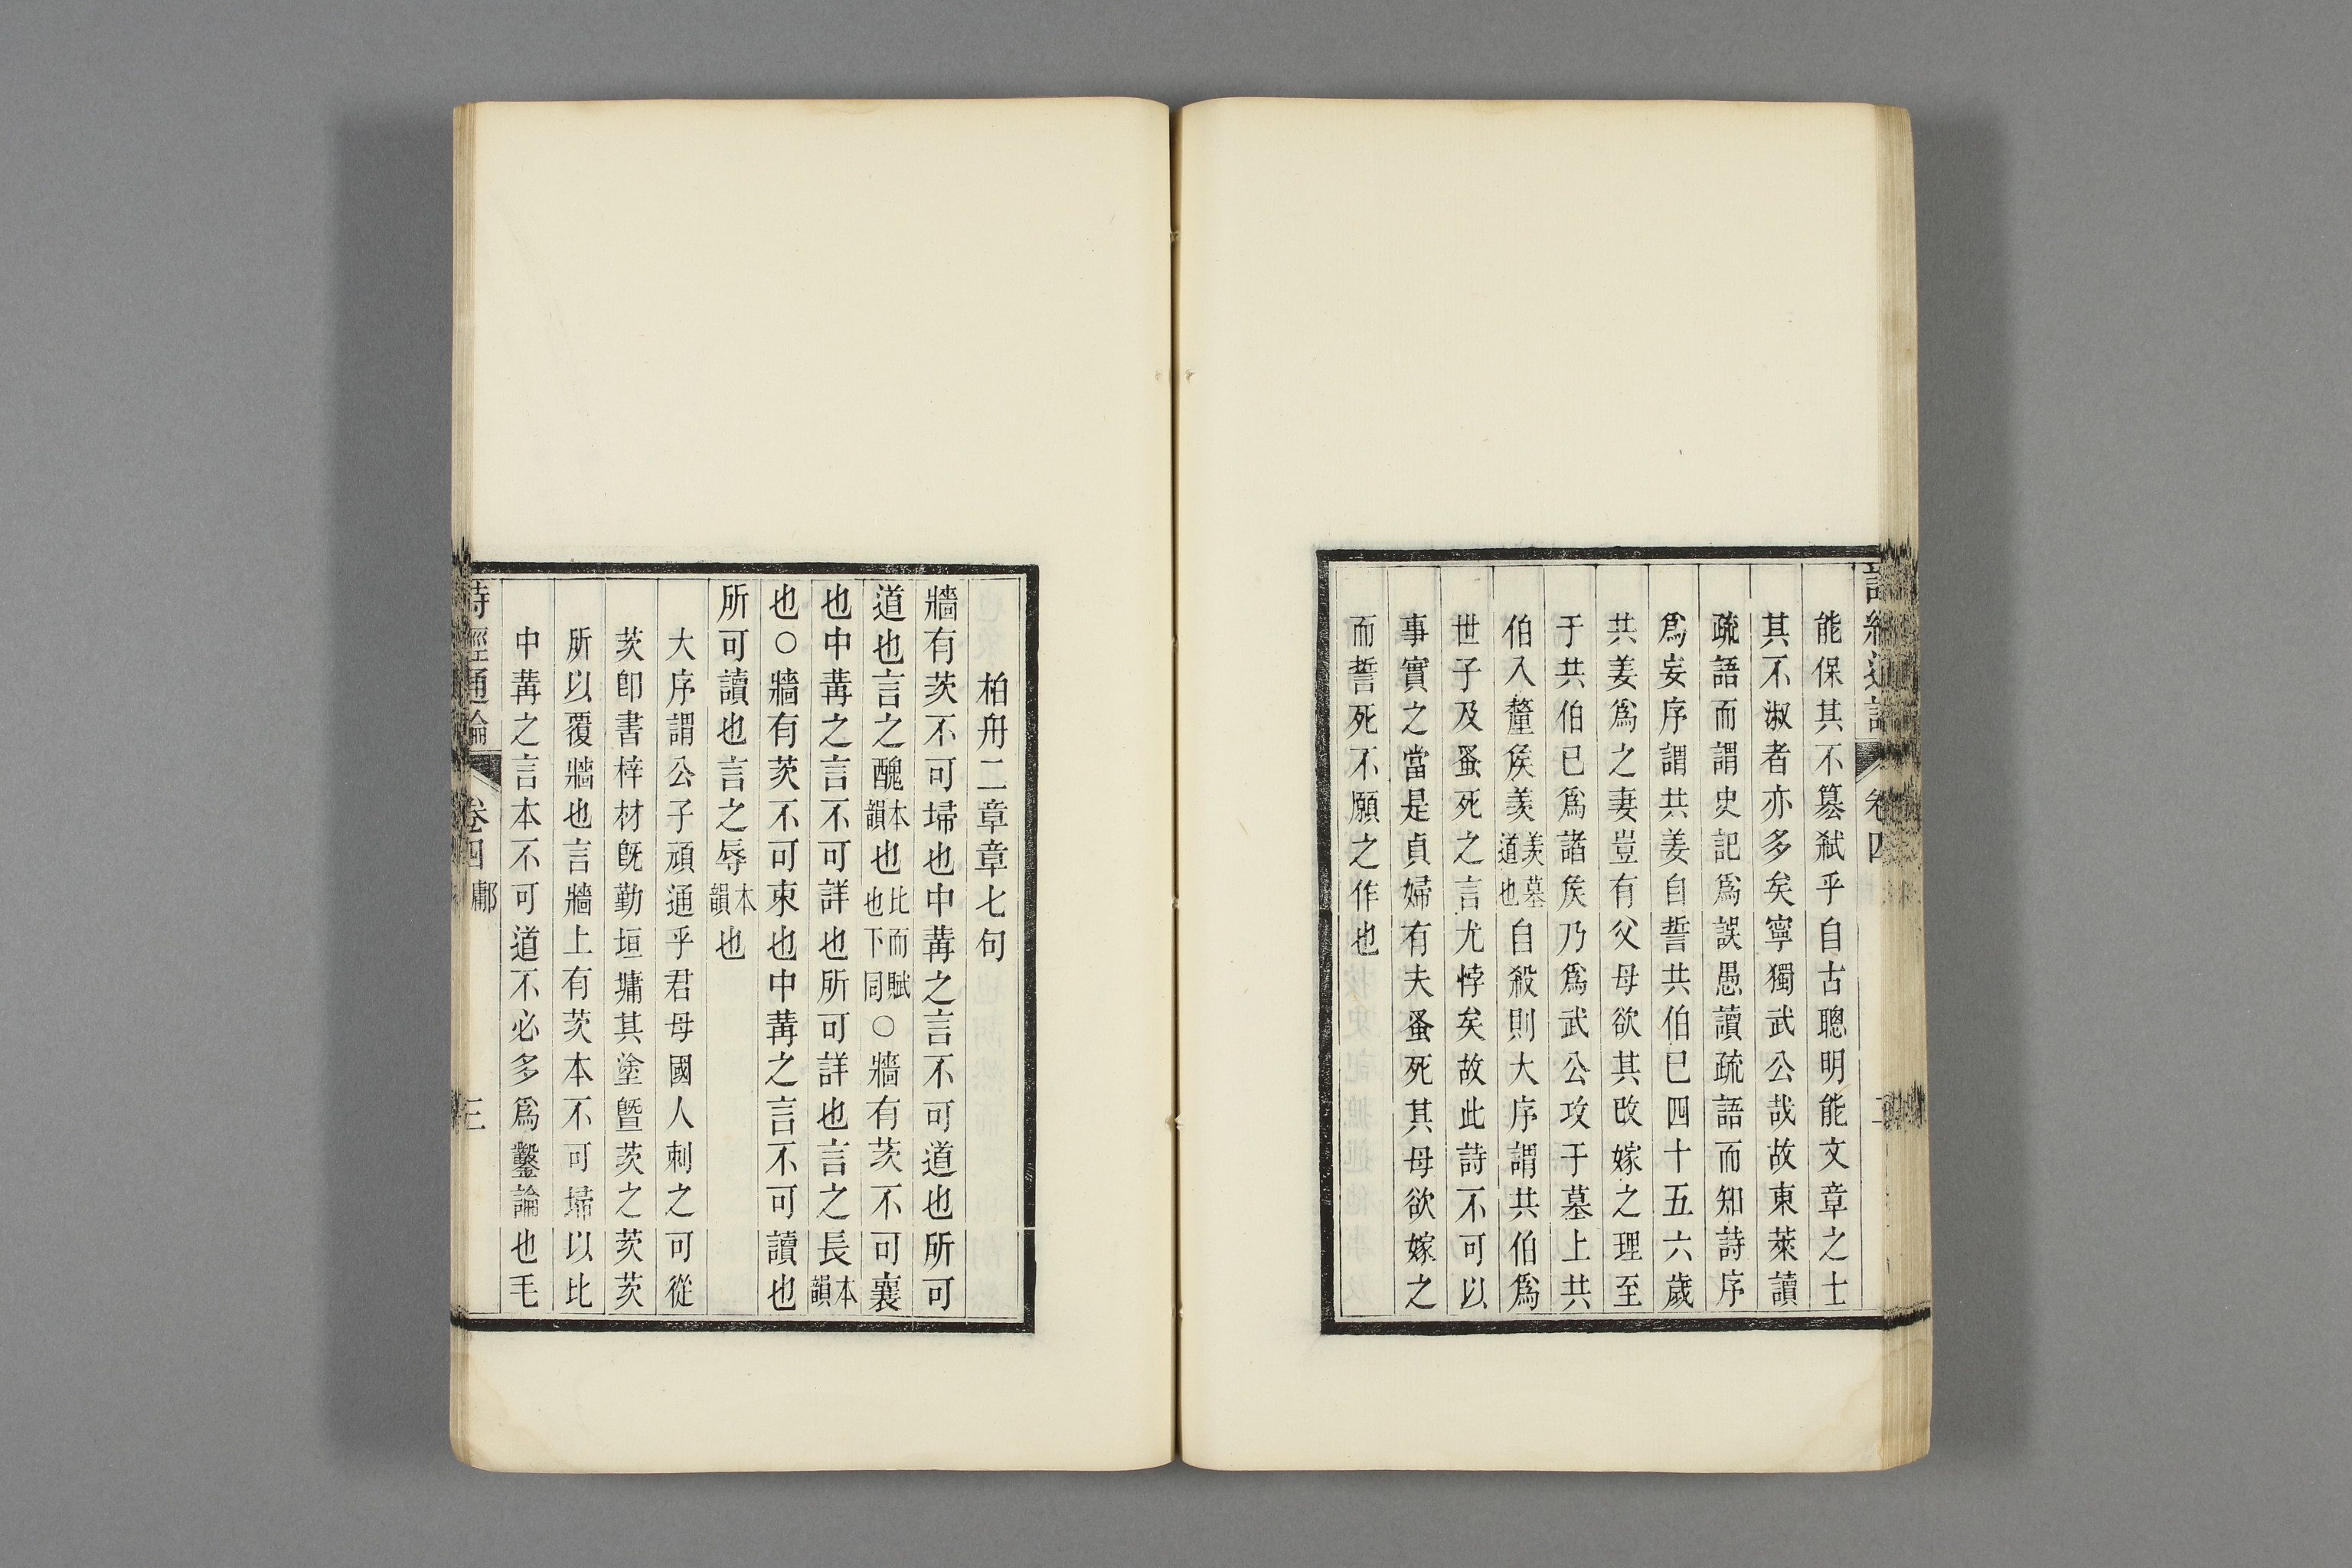 能保其不簒弑乎自古聰明能文章之士
其不淑者亦多矣寧獨武公哉故東萊讀
疏語而謂史記爲誤愚讀疏語而知詩序
爲妄序謂共姜自誓共伯已四十五六歲
共姜爲之妻豈有父母欲其改嫁之理至
于共伯已爲諸矦乃爲武公攻于墓上共
伯入釐矦羡羡墓道也自殺則大序謂共伯爲
世子及蚤死之言尤悖矣故此詩不可以
事實之當是貞婦有夫蚤死其母欲嫁之
而誓死不願之作也
柏舟二章章七句
牆有茨不可埽也中冓之言不可道也所可
道也言之醜本韻也比而賦也下同○牆有茨不可襄
也中冓之言不可詳也所可詳也言之長本韻
也○牆有茨不可束也中冓之言不可讀也
所可讀也言之辱本韻也
大序謂公子頑通乎君母國人刺之可從
茨卽書梓材旣勤垣墉其塗曁茨之茨茨
所以覆牆也言牆上有茨本不可埽以比
中冓之言本不可道不必多爲鑿論也毛
詩經通論 卷四 鄘 三